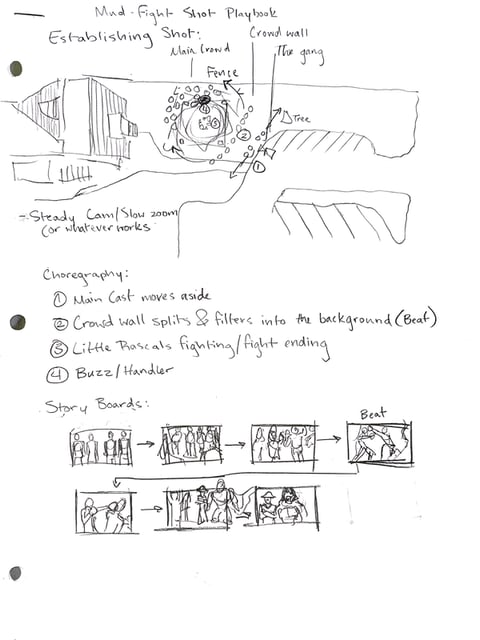 Mud-Fight Shot Playbook
Establishing Shot:
Main Crowd
Crowd wall
The gang
Fence
Tree
4
3
2
1
- Steady Cam/Slow zoom
(or whatever works
Choregraphy:
① Main Cast moves aside
② Crowd wall splits & filters into the background (Beat)
③ Little Rascals fighting/fight ending
④ Buzz/Handler
Story Boards:
Beat